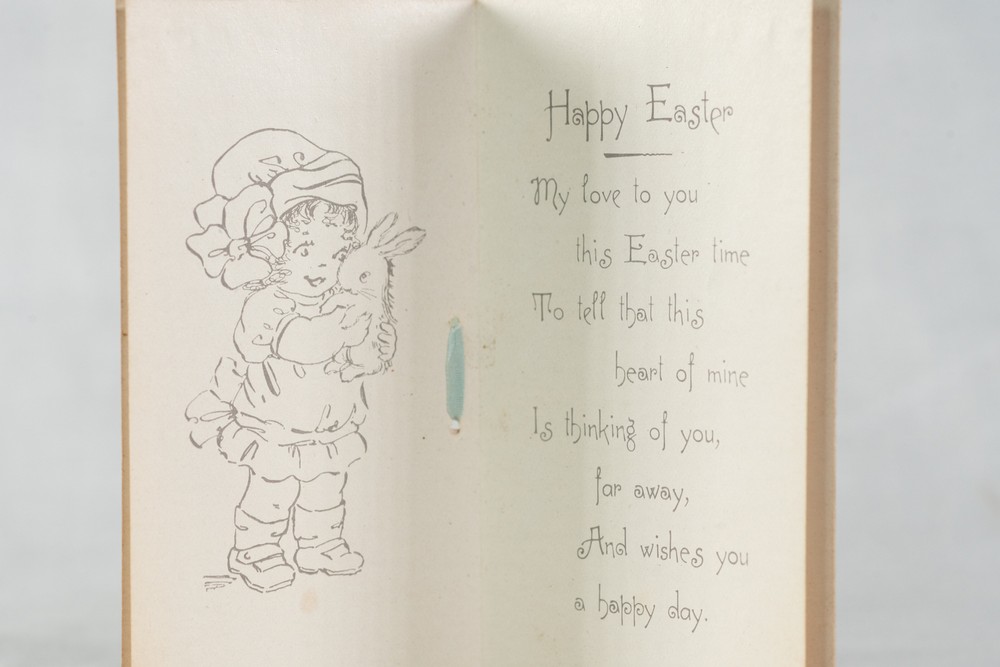 Happy Easter
My love to you
this Easter time
To tell that this
heart of mine
Is thinking of you,
far away,
And wishes you
a happy day.